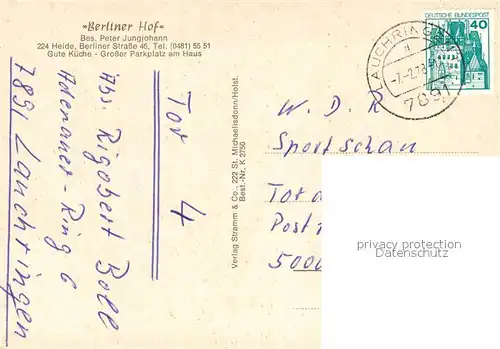 "Berliner Hof"
Bes. Peter Jungjohann
224 Heide, Berliner Straße 46, Tel. (0481) 55 51
Gute Küche - Großer Parkplatz am Haus
Tor 4
Abs. Rigobert Boll
Adenauer-Ring 6
7891 Lauchringen
Verlag Stramm & Co., 222 St. Michaelisdonn/Holst.
Best.-Nr. K 2750
DEUTSCHE BUNDESPOST
40
LAUCHRINGEN
7891
W. D. R
Sportschau
Tor
Post
5000
privacy protection
Datenschutz